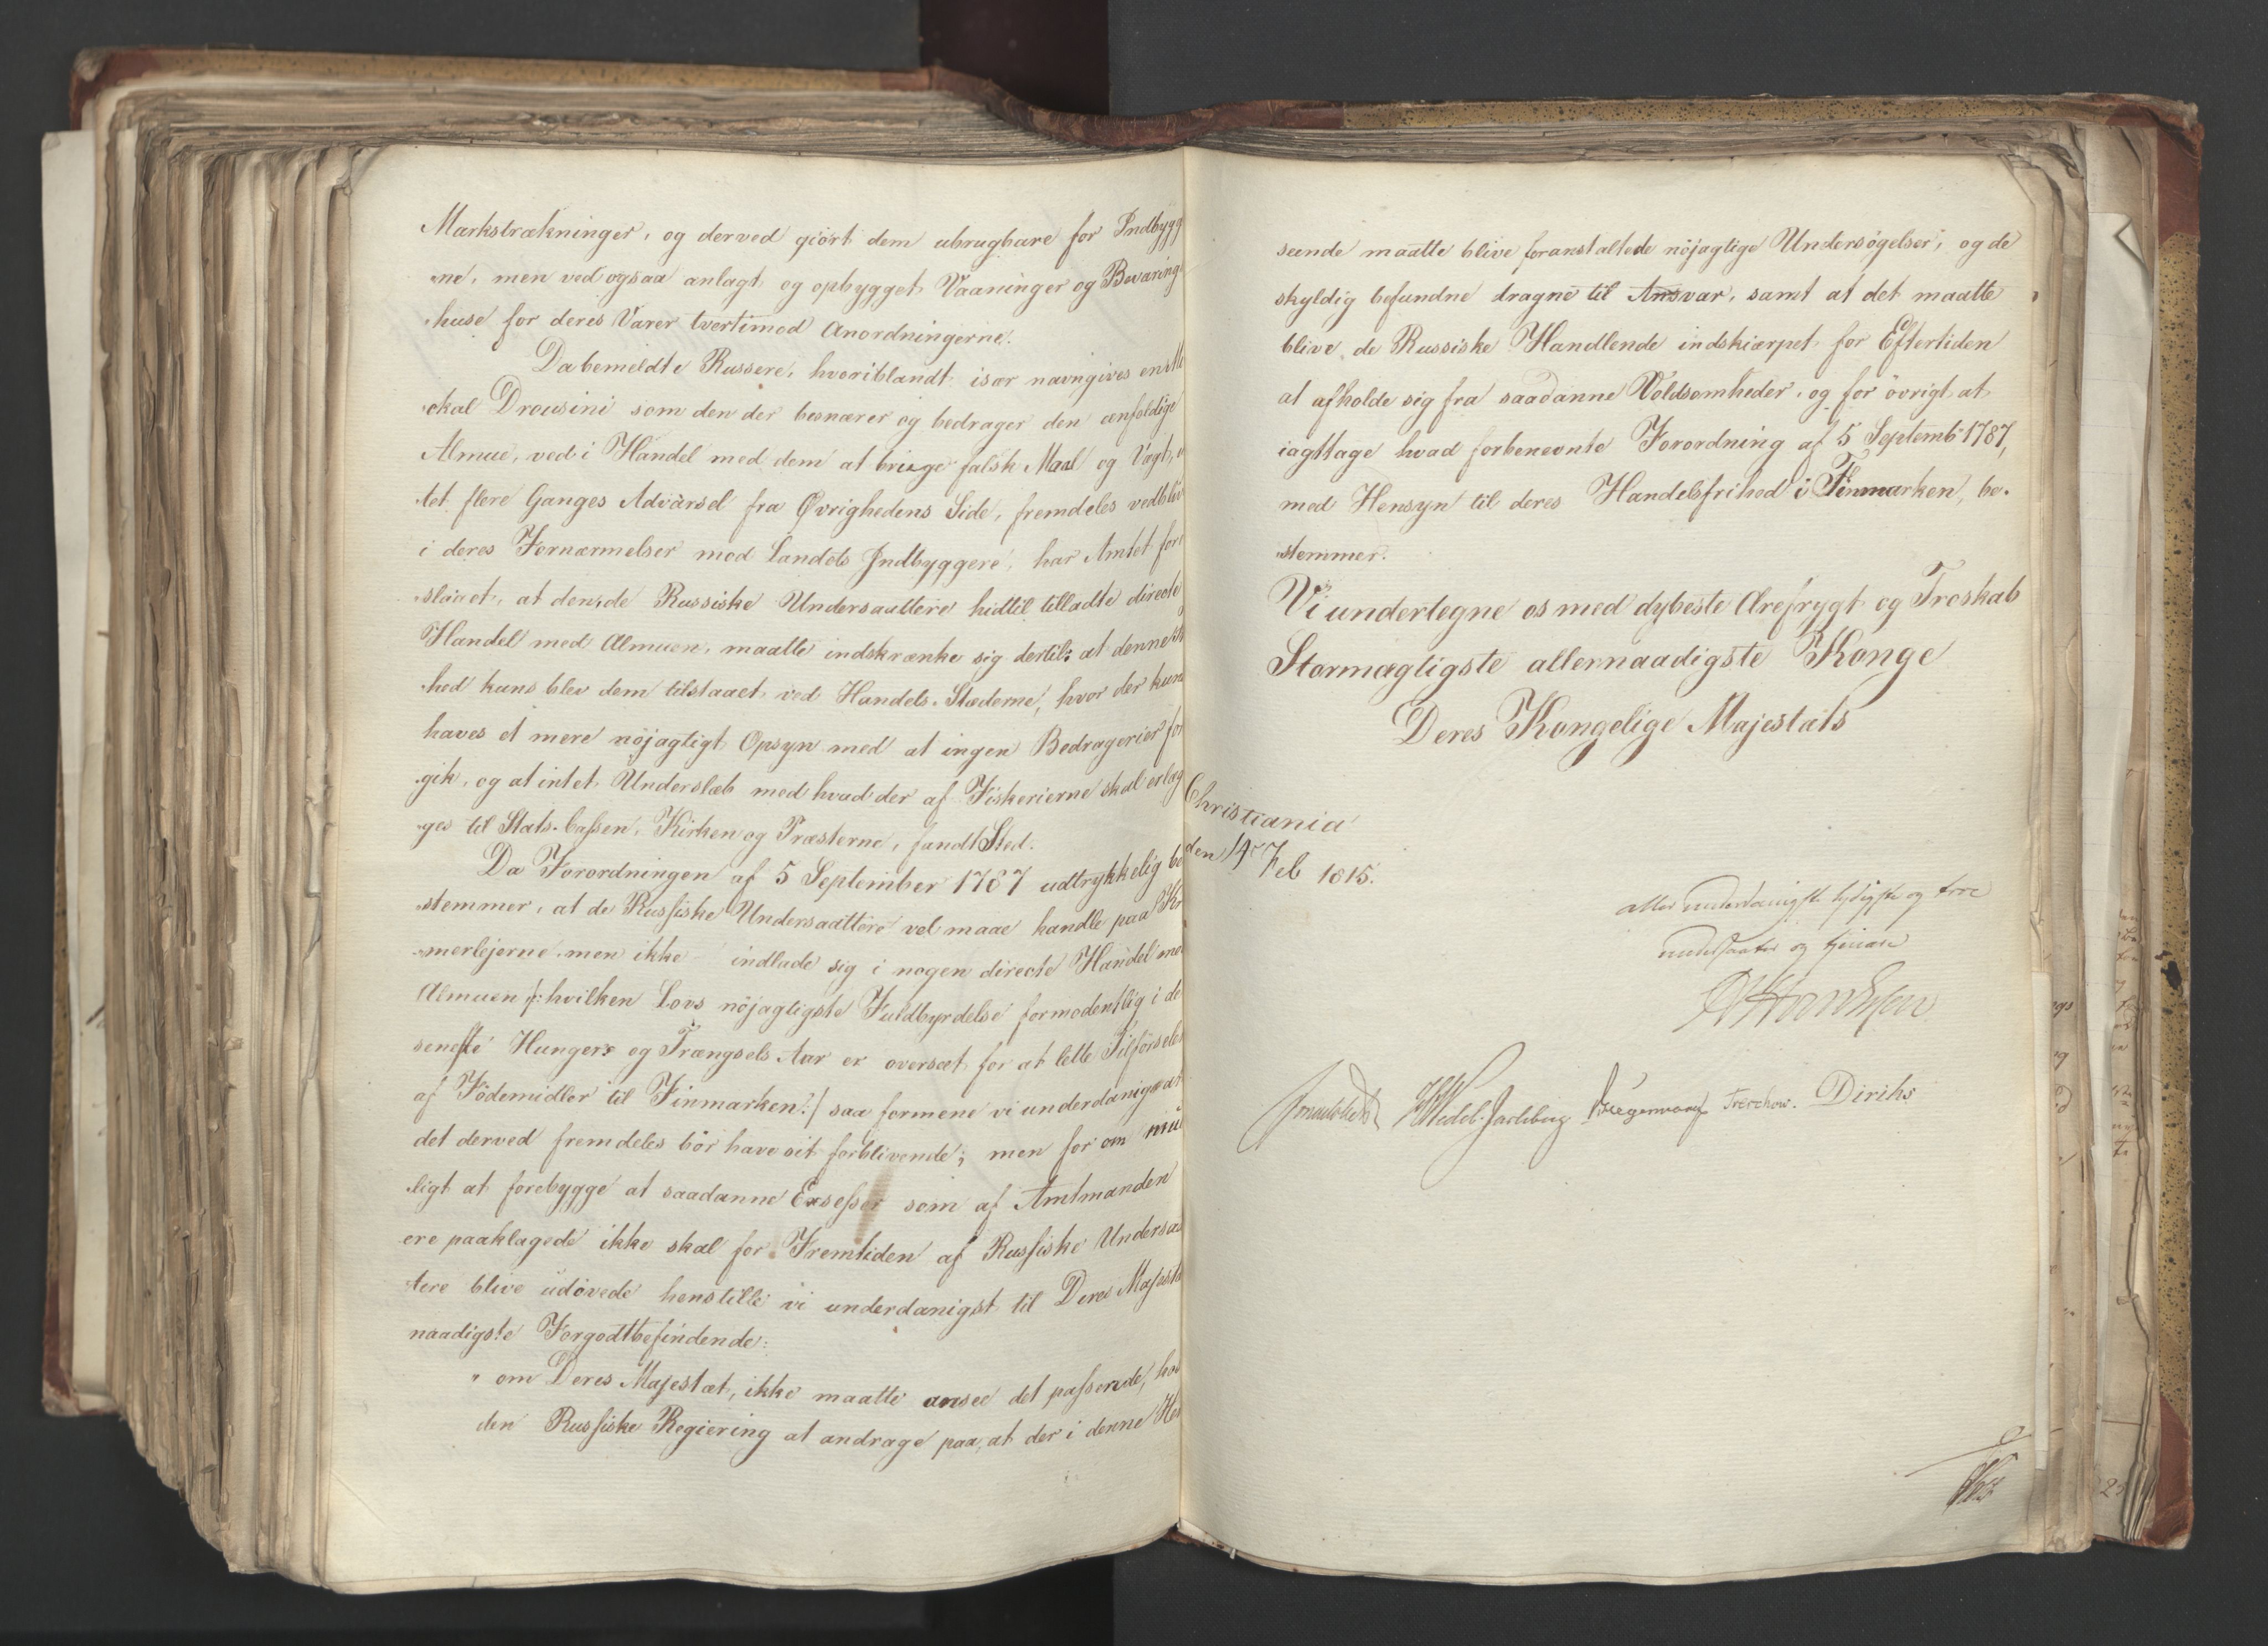 Markstrækninger, og derved giört dem ubrugbare for Indbygg
ne, men ved ogsaa anlagt og opbygget Vaaninger og Bevarings
huse for deris Varer tvertimod Anordningerne.
Da bemeldte Russere, hvoriblandt især navngives en
skal Drousini som den der besnærer og bedrager den eenfoldige
Almue, ved i Handel med dem at bruge falsk Maal og Vægt,
tet flere Ganges Advarsel fra Øvrighedens Side, fremdeles vedbliv
i deres Fornærmelser mod Landets Indbyggere, har Amtet fore
slaaet, at den, de Russiske Undersaattere hidtil tilladte directe
Handel med Almuen, maatte indskrænke sig dertil: at denne
hed kuns blev dem tilstaaet ved Handels-Stæderne, hvor der kun
haves et mere nöjagtigt Opsyn med at ingen Bedragerier for
gik, og at intet Underslæb med hvad der af Fiskerierne skal erlæg
ges til Stats-Cassen, Kirken og Præsterne, fandt Sted.
Da Forordningen af 5 September 1787 udtrykkelig be
stemmer, at de Russiske Undersaattere vel maae handle paa Kr
merlejerne men ikke indlade sig i nogen directe Handel me
Almuen /: hvilken Lovs nöjagtigste Fuldbyrdelse formodentlig i de
seneste Hungers og Trængsels Aar er overseet for at lette Tilförsele
af Födemidler til Finmarken :/ saa formene vi underdanigst at
det derved fremdeles bör have sit forblivende; men for om mu
ligt at forebygge at saadanne Excesser som af Amtmanden
ere paaklagede ikke skal for Fremtiden af Russiske Undersaa
tere blive udövede henstille vi underdanigst til Deres Majest
naadigste Forgodtbefindende:
" om Deres Majestæt, ikke maatte ansee det passende, hos
den Russiske Regiering at andrage paa, at der i denne Hen
seende maatte blive foranstaltede nöjagtige Undersögelser, og de
skyldig befundne dragne til Ansvar, samt at det maatte
blive de Russiske Handlende indskiærpet for Eftertiden
at afholde sig fra saadanne Voldsomheder, og for övrigt at
iagttage hvad forbenevnte Forordning af 5 Septembr 1787,
med Hensyn til deres Handelsfrihed i Finmarken, be-
stemmer.
Vi undertegne os med dybeste Ærefrygt og Troskab
Stormægtigste allernaadigste Konge
Deres Kongelige Majestæts
Christiania
den 14 Feb 1815.
allerunderdanigste lydigste og troe
undersaatter og tjenere
HWedel-Jarlsberg Treschow. Diriks